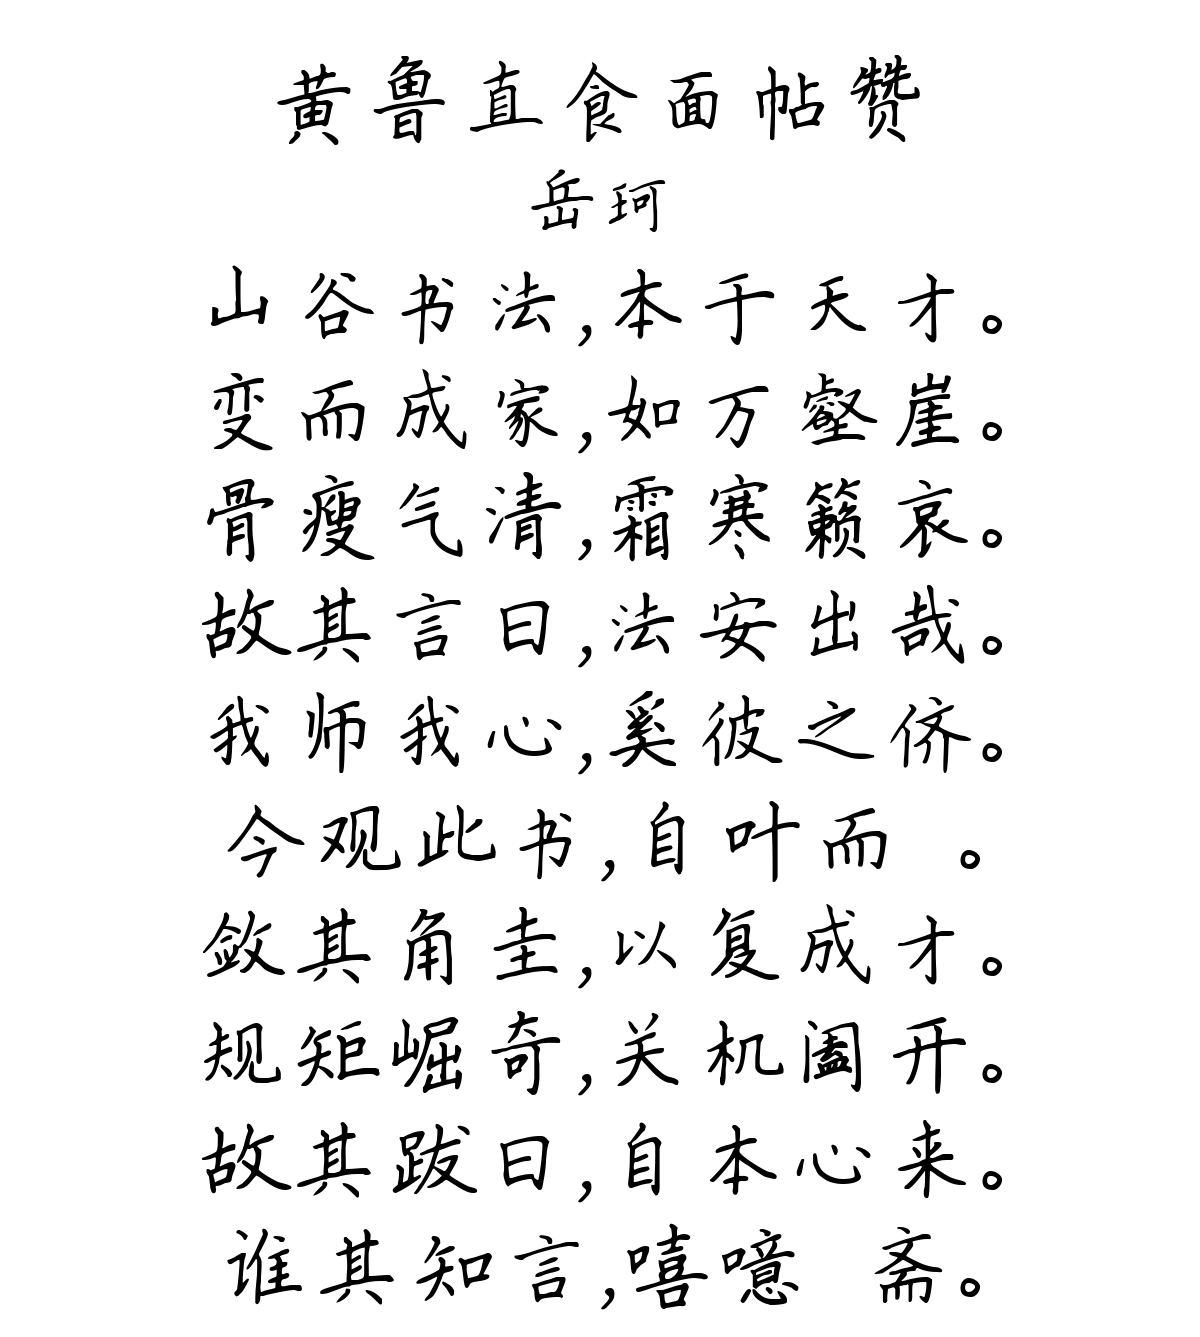 黄鲁直食面帖赞
岳珂
山谷书法,本于天才。
变而成家,如万壑崖。
骨瘦气清,霜寒籁哀。
故其言曰,法安出哉。
我师我心,奚彼之侪。
今观此书,自叶而 。
敛其角圭,以复成才。
规矩崛奇,关机阖开。
故其跋曰,自本心来。
谁其知言,嘻噫 斋。